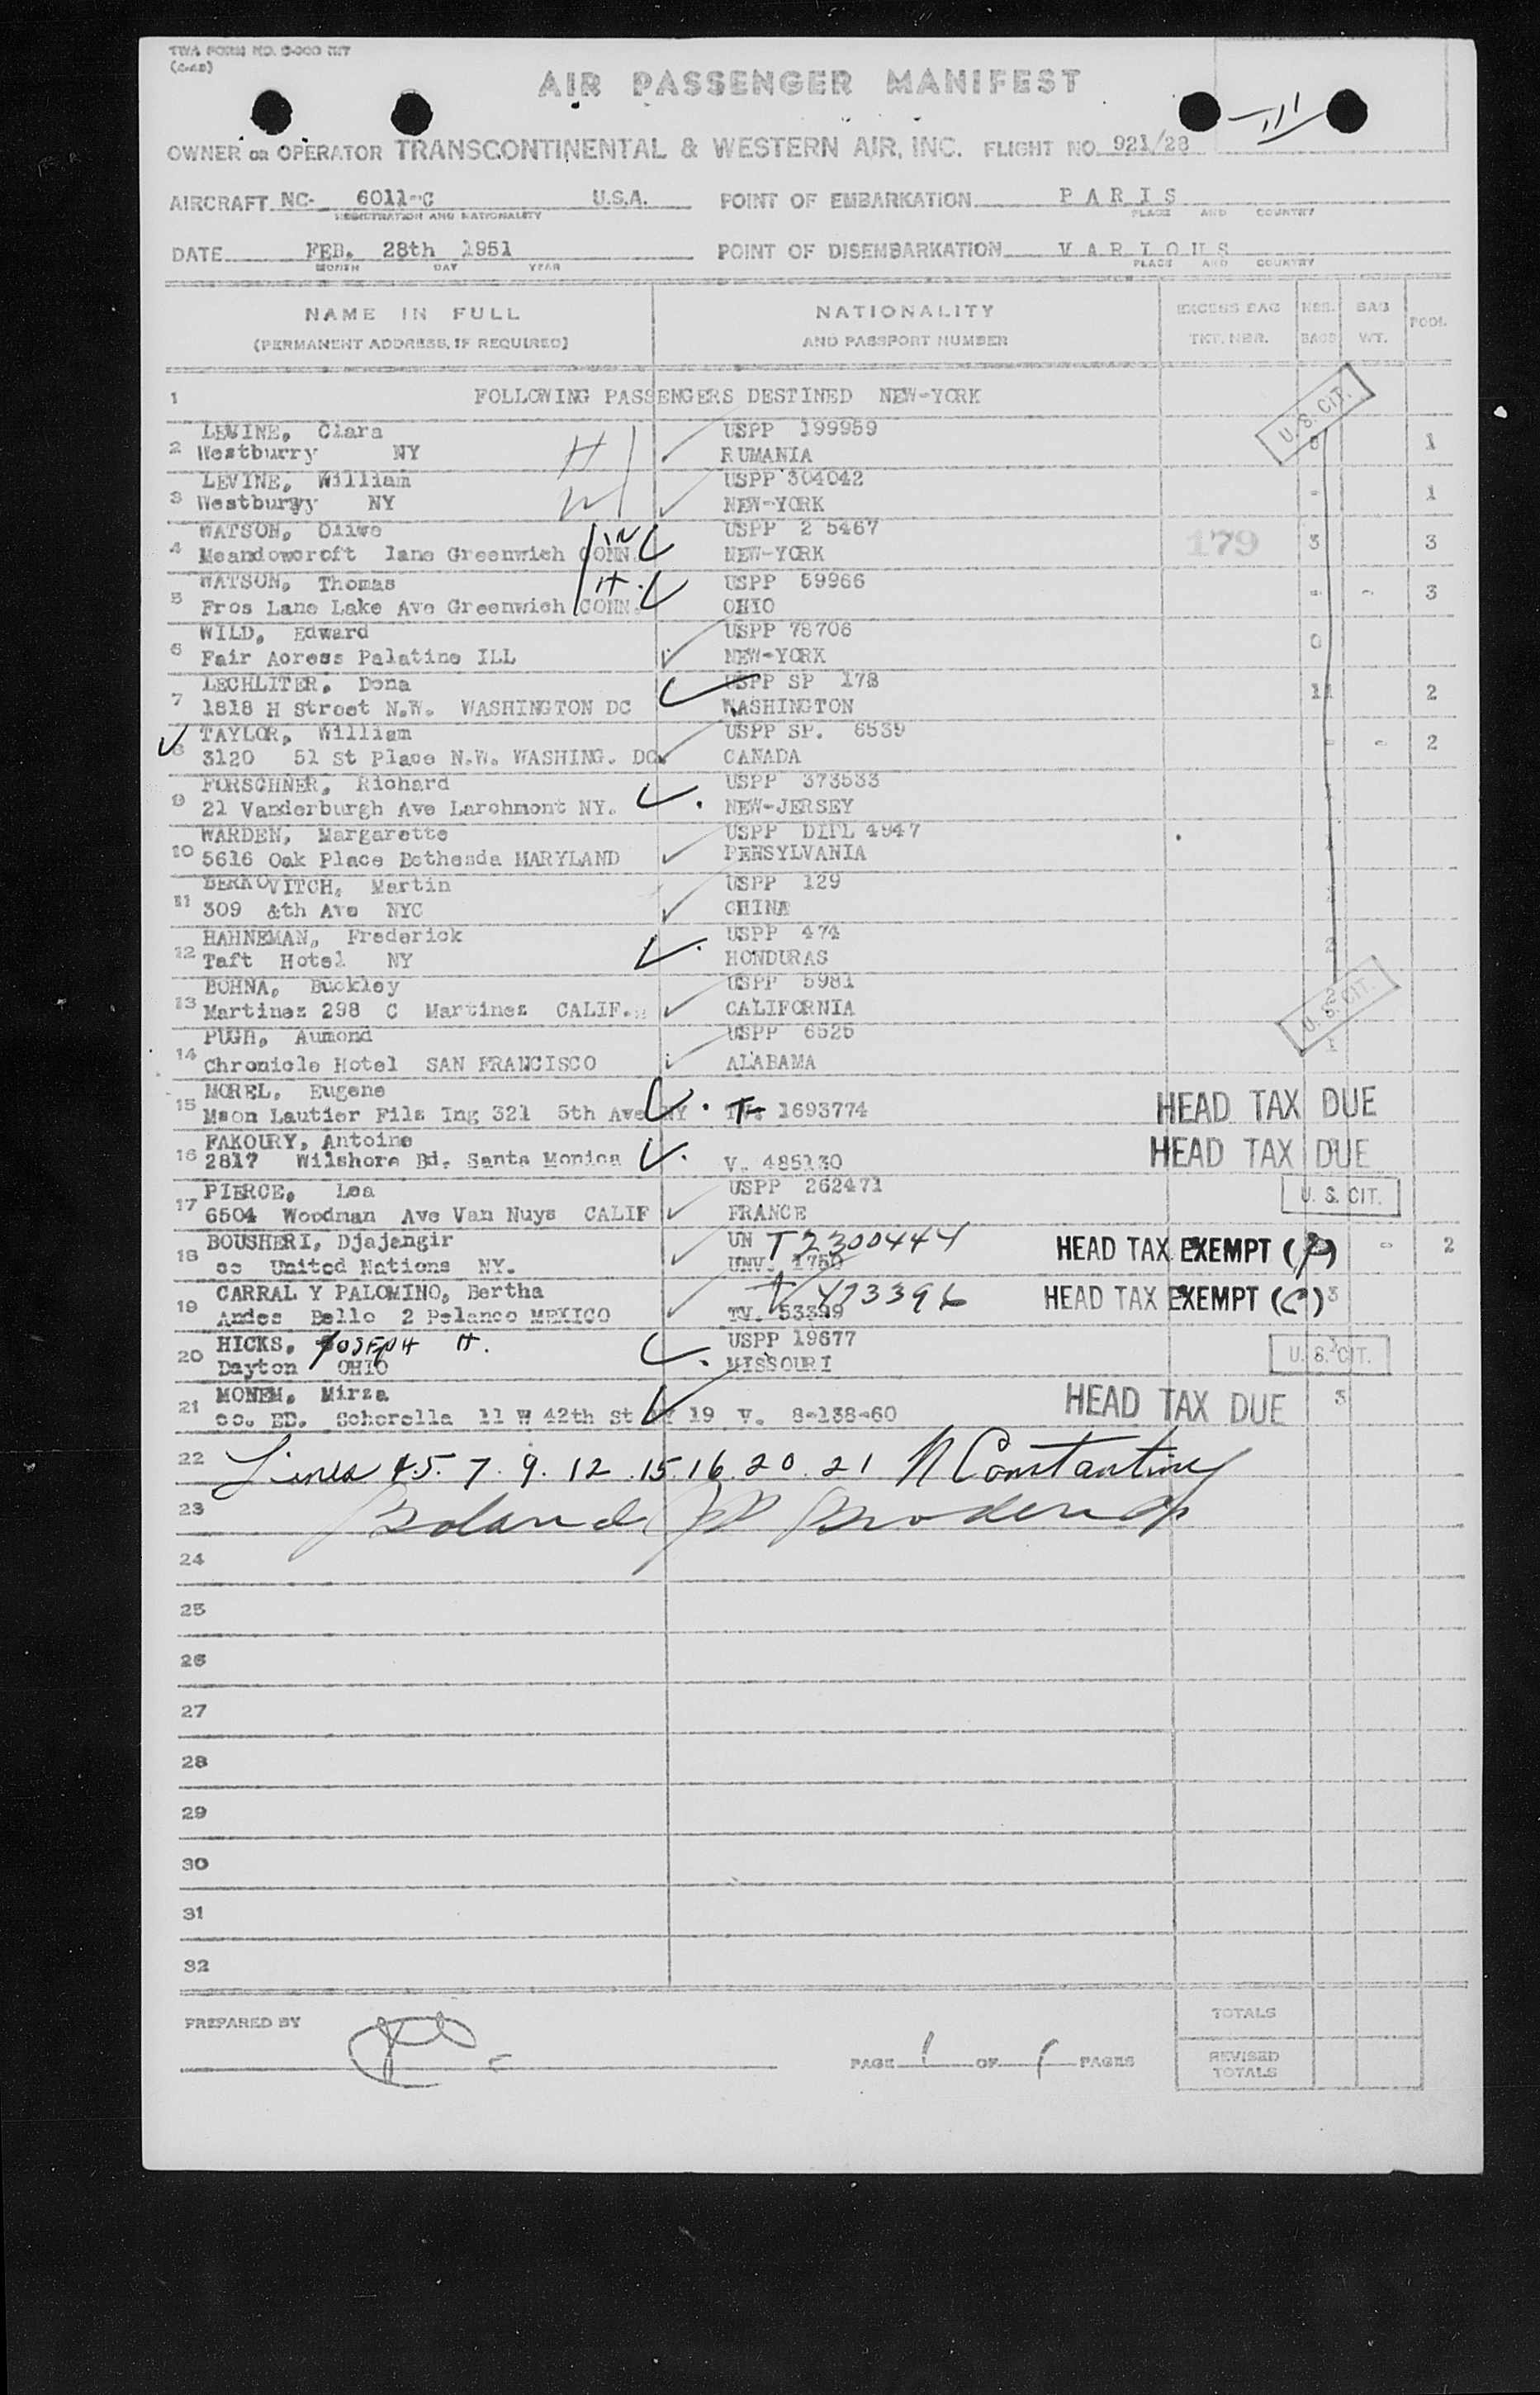 AIR PASSENGER MANIFEST
OWNER OR OPERATOR TRANSCONTINENTAL & WESTERN AIR, INC. FLIGHT NO. 921/28
AIRCRAFT NC- 6011-C U.S.A. POINT OF EMBARKATION P A R I S
REGISTRATION AND NATIONALITY PLACE AND COUNTRY
DATE FEB. 28th 1951 POINT OF DISEMBARKATION V A R I O U S
MONTH DAY YEAR PLACE AND COUNTRY
NAME IN FULL NATIONALITY EXCESS BAG NBR. BAG PODL
(PERMANENT ADDRESS, IF REQUIRED) AND PASSPORT NUMBER TKT. NBR. BAGS WT.
1 FOLLOWING PASSENGERS DESTINED NEW-YORK
U. S. CIT.
LEVINE, Clara USPP 199959
2 Westburry NY RUMANIA 1
LEVINE, William USPP 304042
3 Westburyy NY NEW-YORK - 1
WATSON, Olive USPP 2 5467
4 Meandowcroft lane Greenwich CONN. NEW-YORK 179 3 3
WATSON, Thomas H. USPP 59966
5 Fros Lane Lake Ave Greenwich CONN. OHIO - - 3
WILD, Edward USPP 78706
6 Fair Acress Palatine ILL NEW-YORK 0
LECHLITER, Dona USPP SP 178
7 1818 H Street N.W. WASHINGTON DC WASHINGTON 11 2
TAYLOR, William USPP SP. 6539
8 3120 51 St Place N.W. WASHING. DC. CANADA - - 2
FORSCHNER, Richard USPP 373533
9 21 Vanderburgh Ave Larchmont NY. NEW-JERSEY
WARDEN, Margarette USPP DIPL 4947
10 5616 Oak Place Bethesda MARYLAND PENSYLVANIA
BERKOVITCH, Martin USPP 129
11 309 &th Ave NYC CHINA
HAHNEMAN, Frederick USPP 474
12 Taft Hotel NY HONDURAS 2
BOHNA, Buckley USPP 5981
13 Martinez 298 C Martinez CALIF. CALIFORNIA 2
U. S. CIT.
PUGH, Aumond USPP 6525
14 Chronicle Hotel SAN FRANCISCO ALABAMA 1
MOREL, Eugene
15 Mson Lautier Fils Ing 321 5th Ave NY T 1693774 HEAD TAX DUE
FAKOURY, Antoine
16 2817 Wilshore Bd. Santa Monica V. 485130 HEAD TAX DUE
PIERCE, Lea USPP 262471
17 6504 Woodman Ave Van Nuys CALIF FRANCE U. S. CIT.
BOUSHERI, Djajengir UN T2300444
18 cc United Nations NY. UNV. 1750 HEAD TAX EXEMPT ( ) - 2
CARRAL Y PALOMINO, Bertha V 473396
19 Andes Bello 2 Polanco MEXICO TV. 53399 HEAD TAX EXEMPT (C) 3
HICKS, JOSEPH H. USPP 19677
20 Dayton OHIO MISSOURI U. S. CIT.
MONEM, Mirza
21 cc. ED. Schorella 11 W 42th St NY 19 V. 8-138-60 HEAD TAX DUE 3
22 Lines 4.5. 7. 9. 12. 15. 16. 20. 21 N Constantine
23
24
25
26
27
28
29
30
31
32
PREPARED BY TOTALS
PAGE 1 OF 1 PAGES REVISED TOTALS